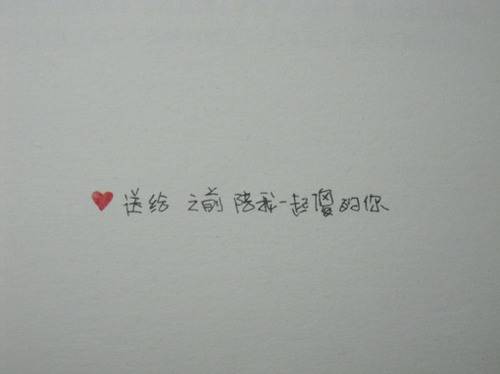 送给 之前陪我一起傻的你